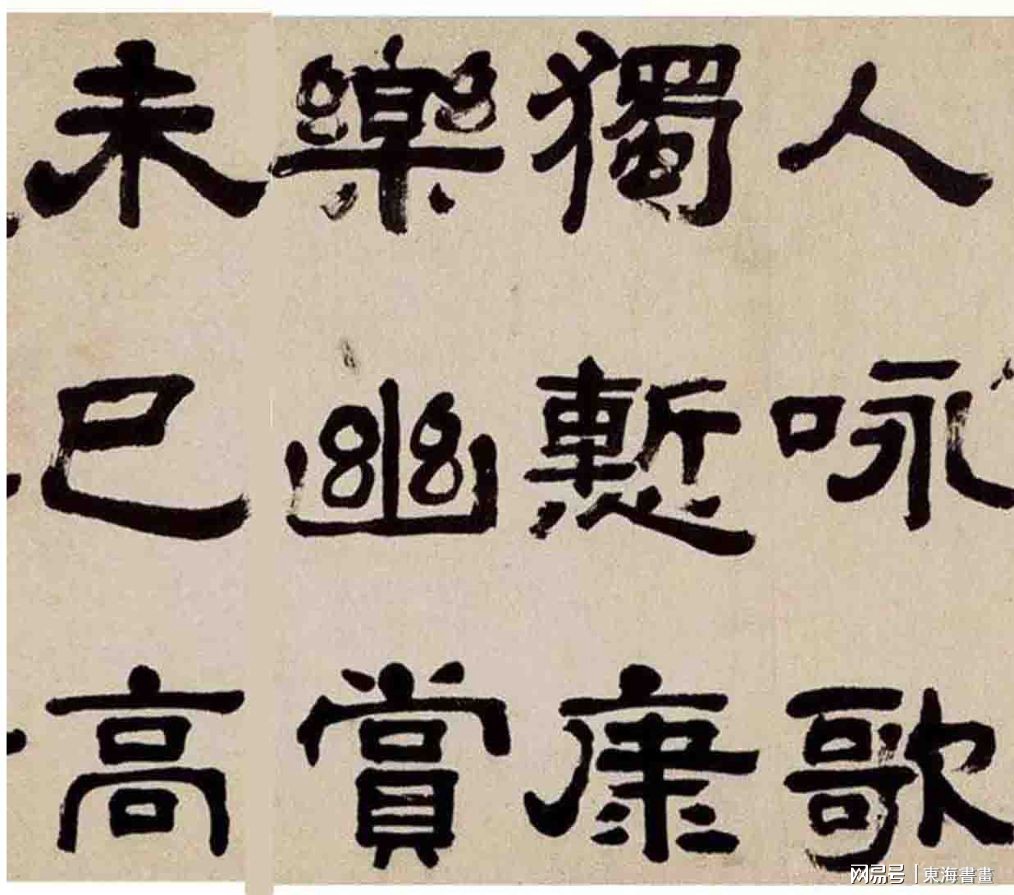 人咏歌
獨慙康
樂幽賞
未已高
网易号 | 東海書畫